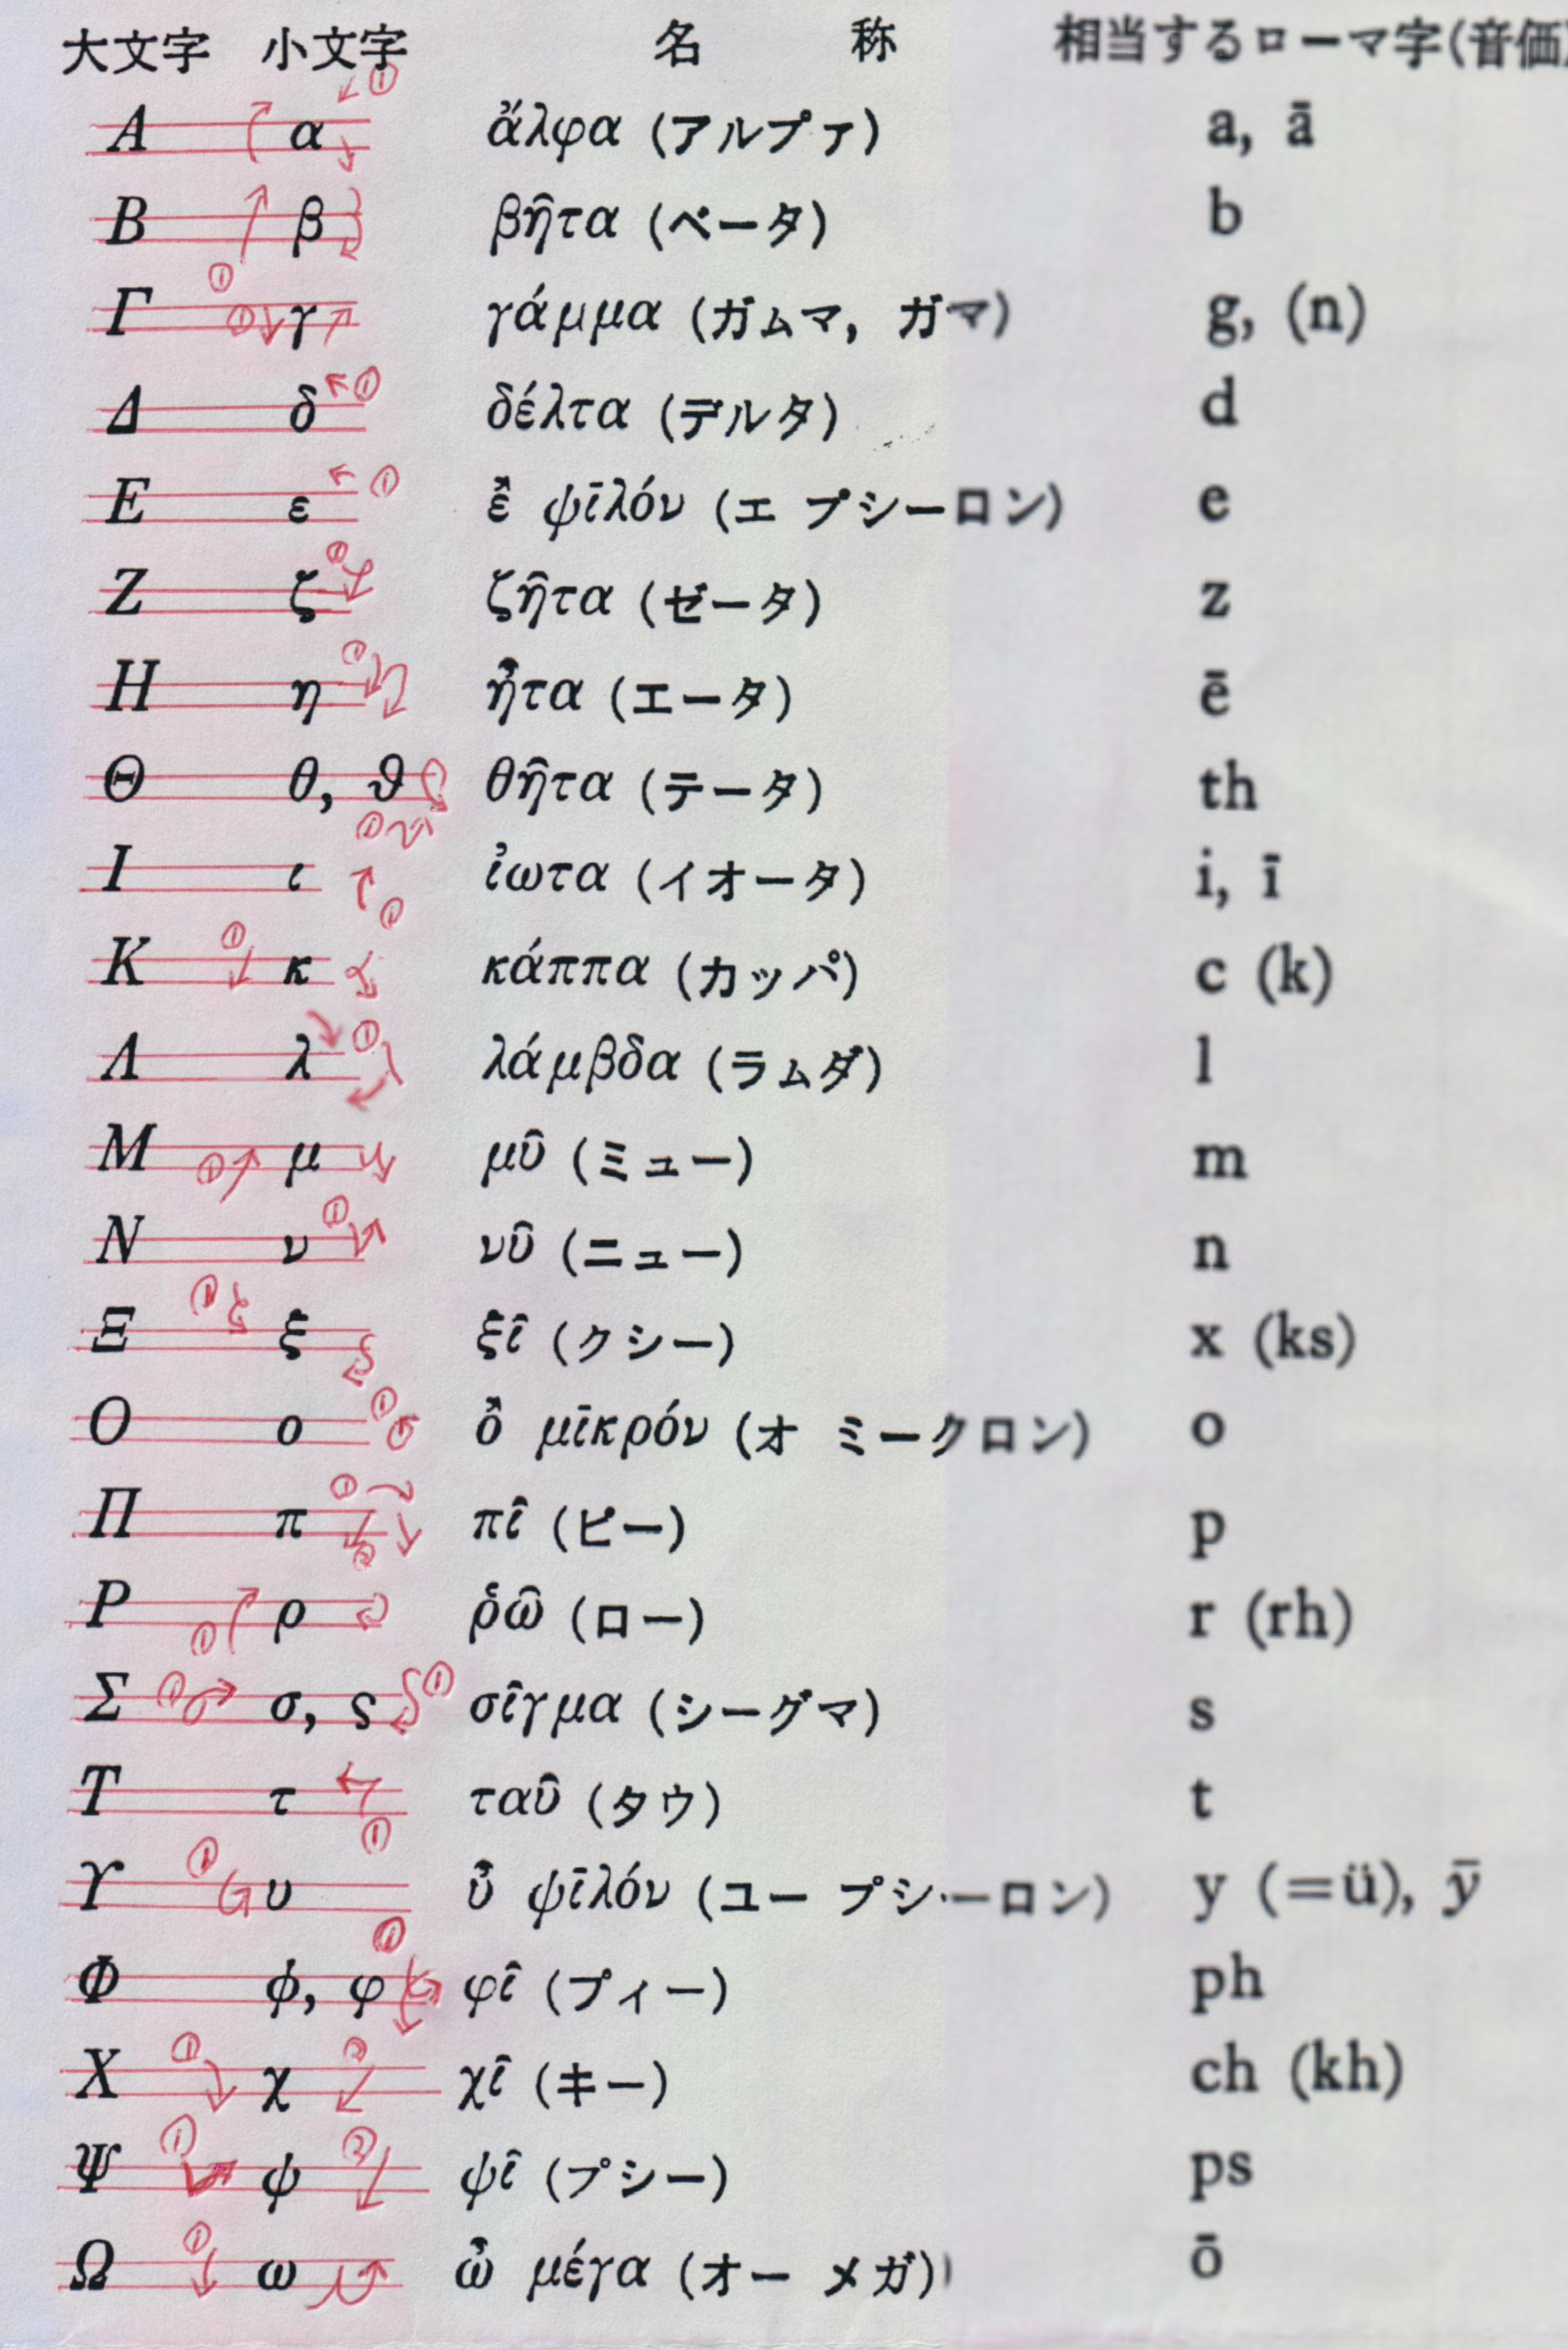 大文字 小文字 名 称 相当するローマ字(音価)
Α α ἄλφα (アルプァ) a, ā
Β β βῆτα (ベータ) b
Γ γ γάμμα (ガムマ, ガマ) g, (n)
Δ δ δέλτα (デルタ) d
Ε ε ἒ ψῑλόν (エ プシーロン) e
Ζ ζ ζῆτα (ゼータ) z
Η η ἦτα (エータ) ē
Θ θ, ϑ θῆτα (テータ) th
Ι ι ἰωτα (イオータ) i, ī
Κ κ κάππα (カッパ) c (k)
Λ λ λάμβδα (ラムダ) l
Μ μ μῦ (ミュー) m
Ν ν νῦ (ニュー) n
Ξ ξ ξῖ (クシー) x (ks)
Ο ο ὂ μῑκρόν (オ ミークロン) o
Π π πῖ (ピー) p
Ρ ρ ῥῶ (ロー) r (rh)
Σ σ, ς σῖγμα (シーグマ) s
Τ τ ταῦ (タウ) t
ϒ υ ὖ ψῑλόν (ユー プシーロン) y (=ü), ȳ
Φ ϕ, φ φῖ (プィー) ph
Χ χ χῖ (キー) ch (kh)
Ψ ψ ψῖ (プシー) ps
Ω ω ὦ μέγα (オー メガ) ō